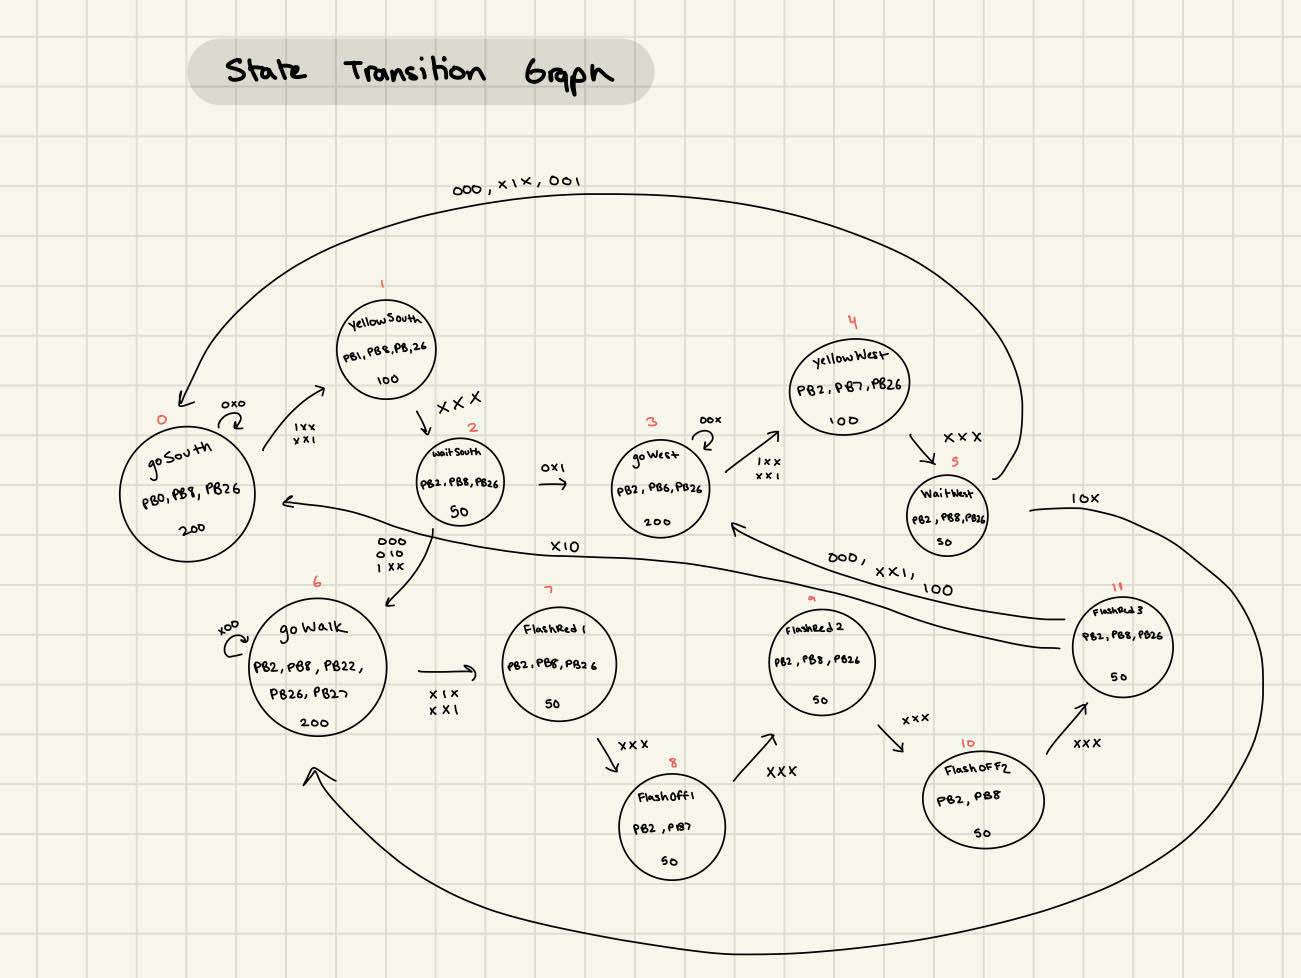 State Transition Graph
000, X1X, 001
1
yellow South
PB1, PB8, PB,26
100
XXX
0
0X0
1XX
XX1
goSouth
PB0, PB8, PB26
200
2
waitSouth
PB2, PB8, PB26
50
0X1
3
00X
goWest
PB2, PB6, PB26
200
1XX
XX1
4
yellowWest
PB2, PB7, PB26
100
XXX
5
WaitWest
PB2, PB8, PB26
50
10X
000
010
1XX
X10
000, XX1,
100
6
X00
goWalk
PB2, PB8, PB22,
PB26, PB27
200
X1X
XX1
7
FlashRed 1
PB2, PB8, PB26
50
XXX
8
FlashOff1
PB2, PB7
50
XXX
9
FlashRed 2
PB2, PB8, PB26
50
XXX
10
FlashOFF2
PB2, PB8
50
XXX
11
FlashRed 3
PB2, PB8, PB26
50